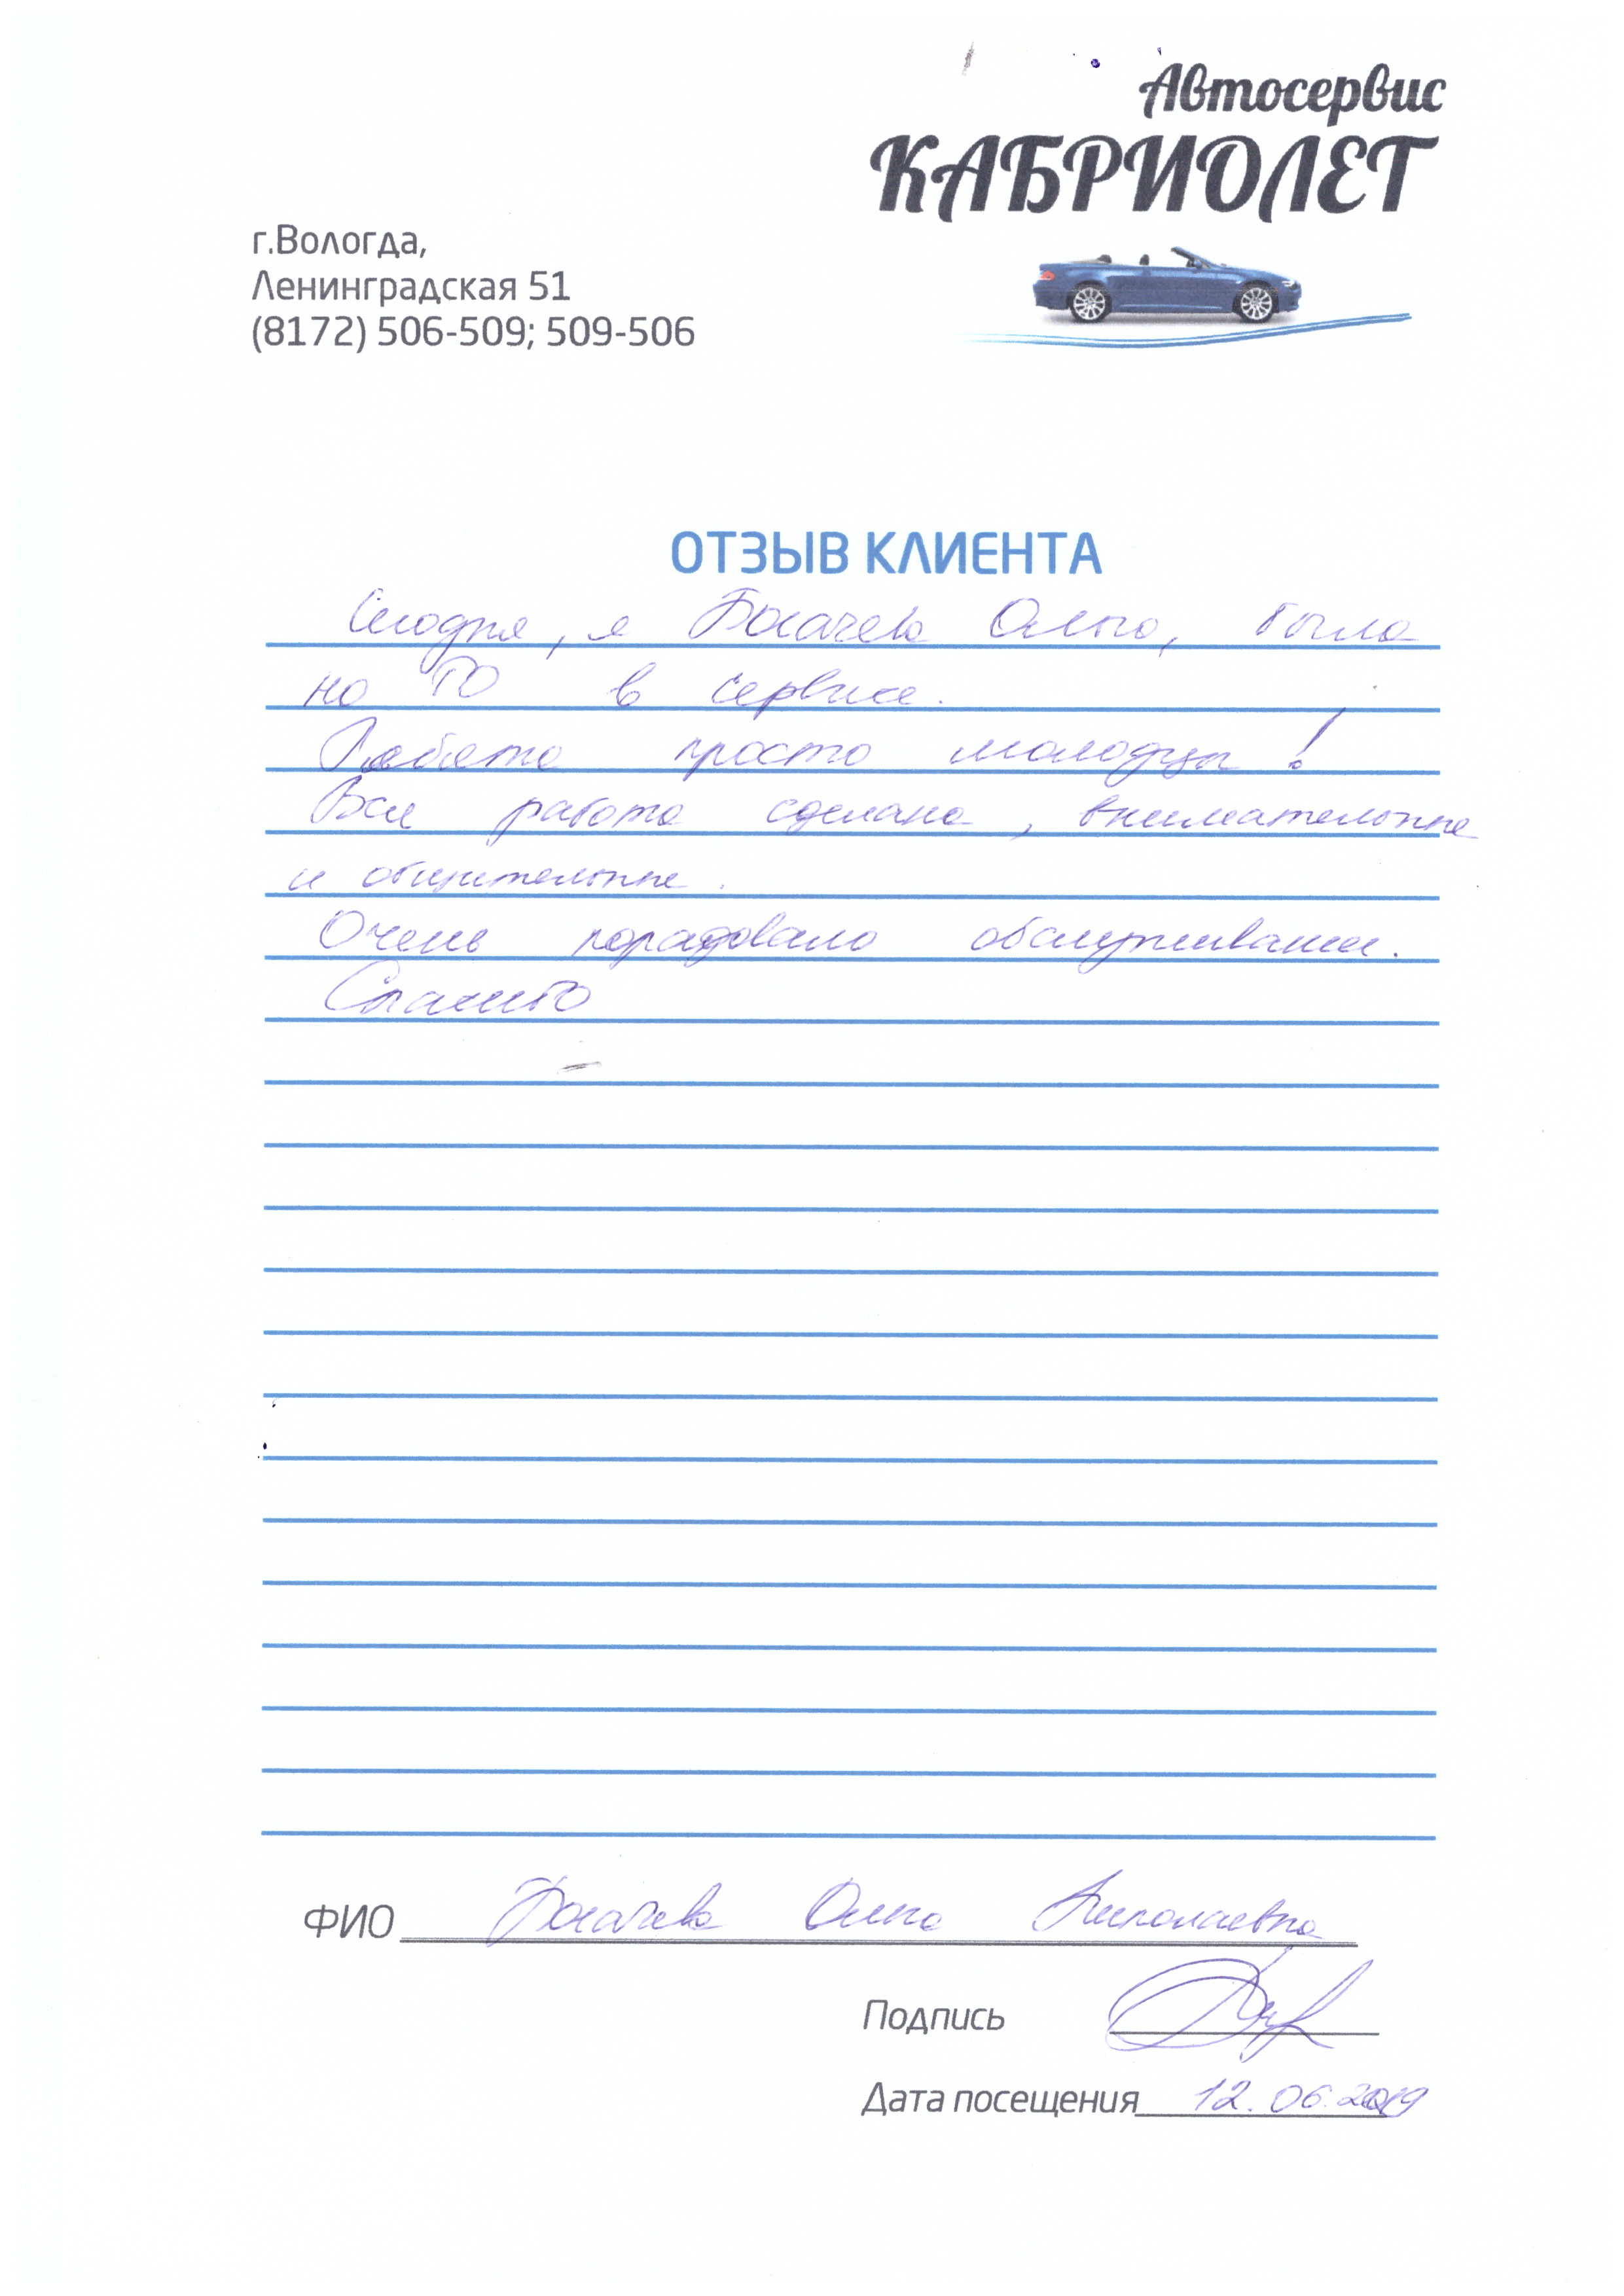 Автосервис
КАБРИОЛЕТ
г.Вологда,
Ленинградская 51
(8172) 506-509; 509-506
ОТЗЫВ КЛИЕНТА
Сегодня, я Богачева Ольга, была
на ТО в сервисе.
Ребята просто молодцы!
Вся работа сделана, внимательные
и общительные.
Очень порадовало обслуживание.
Спасибо
ФИО Богачева Ольга Николаевна
Подпись
Дата посещения 12.06.2019